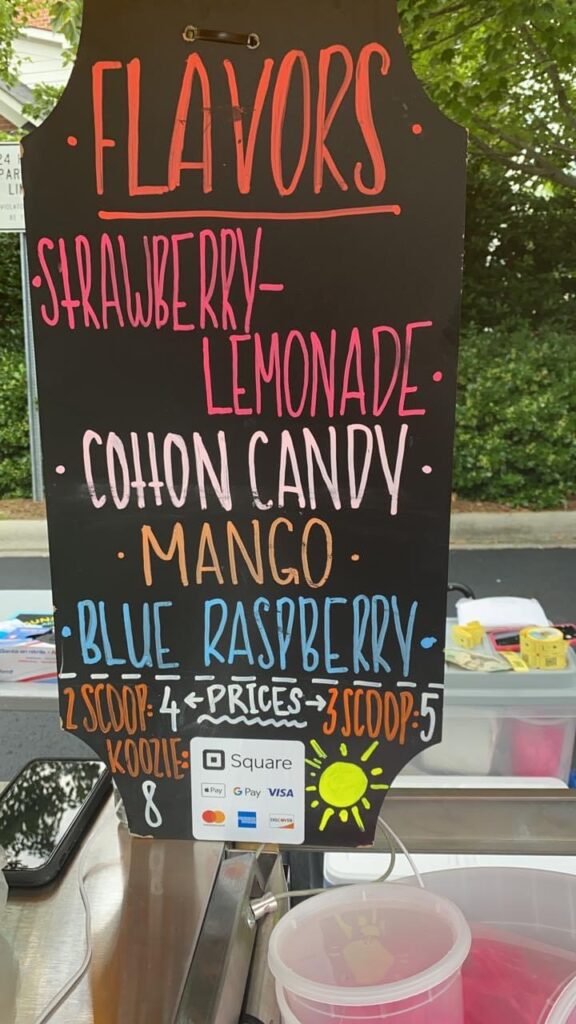 FLAVORS
STRAWBERRY-
LEMONADE
COTTON CANDY
MANGO
BLUE RASPBERRY
2 SCOOP: 4 ←PRICES→ 3 SCOOP: 5
KOOZIE:
8
Square
Pay G Pay VISA
DISCOVER
24 H
PAR
LI